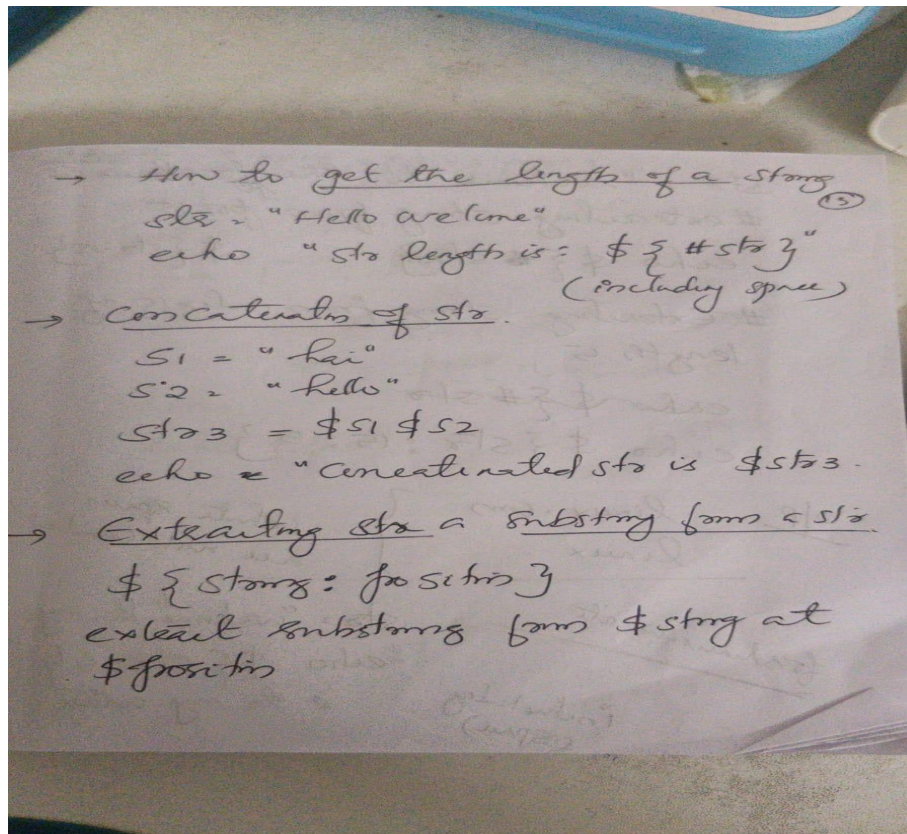 → How to get the length of a string
(3)
str = "Hello welcome"
echo "str length is: ${#str}"
(including space)
→ Concatenation of str.
S1 = "hai"
S2 = "hello"
str3 = $S1 $S2
echo = "Concatenated str is $str3.
→ Extracting str a substring from a str.
${string: position}
extract substring from $string at
$position